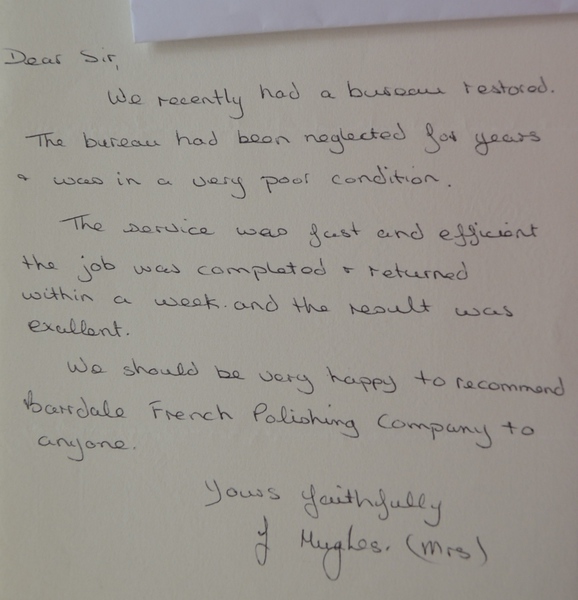 Dear Sir,
We recently had a bureau restored.
The bureau had been neglected for years
& was in a very poor condition.
The service was fast and efficient
the job was completed & returned
within a week. and the result was
exallent.
We should be very happy to recommend
Barrdale French Polishing Company to
anyone.
Yours faithfully
J Hughes. (Mrs)